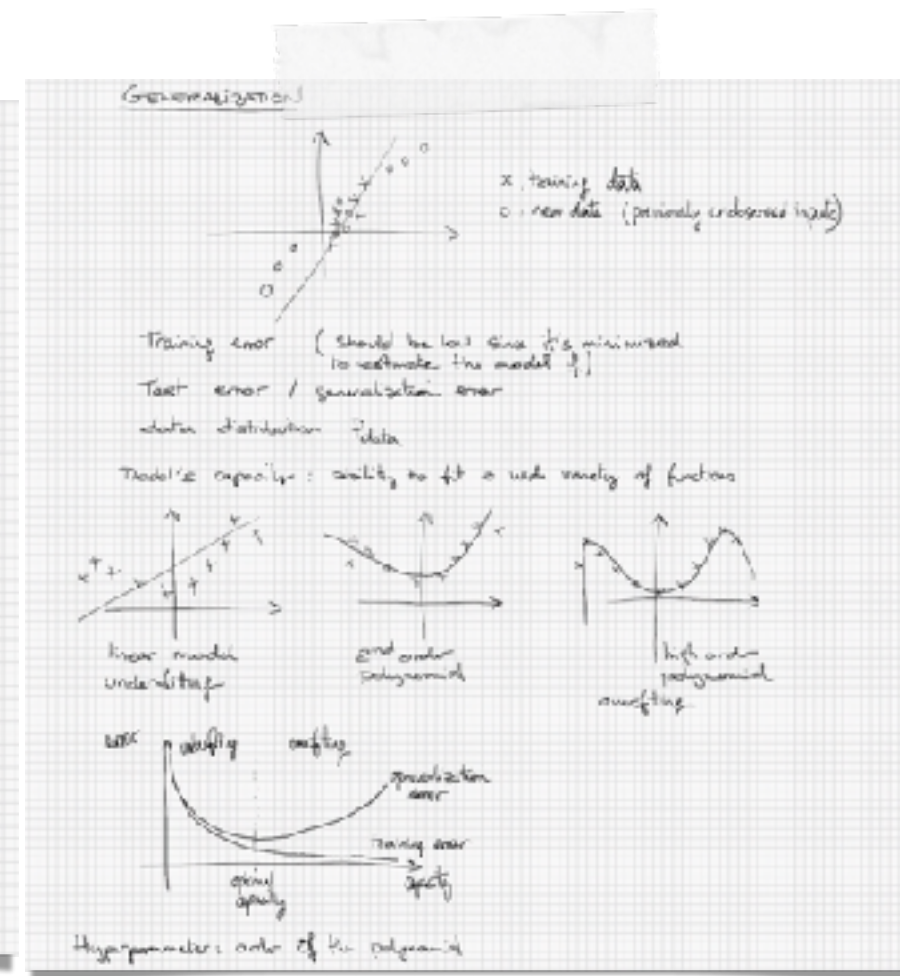 GENERALIZATION
x : training data
o : new data (previously unobserved inputs)
Training error (should be low since it's minimized
to estimate the model f)
Test error / generalization error
data distribution Pdata
Model's capacity : ability to fit a wide variety of functions
linear model
underfitting
2nd order
polynomial
high order
polynomial
overfitting
error underfitting overfitting
generalization
error
training error
optimal
capacity
capacity
Hyperparameter : order of the polynomial